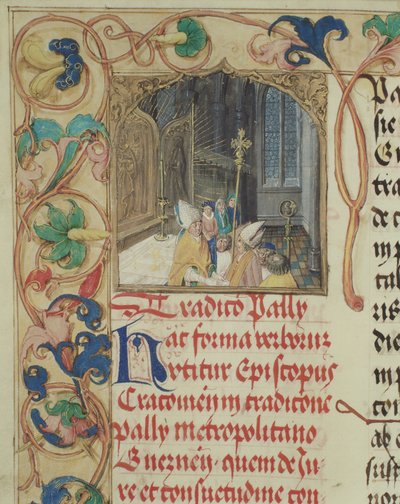 Tradico Pally
Hac forma verboruz
vtitur Episcopus
Cracouien in tradicone
pally metropolitano
Gneznen. quem de Iu
re et consuetudine con
Pa
sie
Gn
tra
de c
in p
tal
ris
die
in p
con
ab e
susp